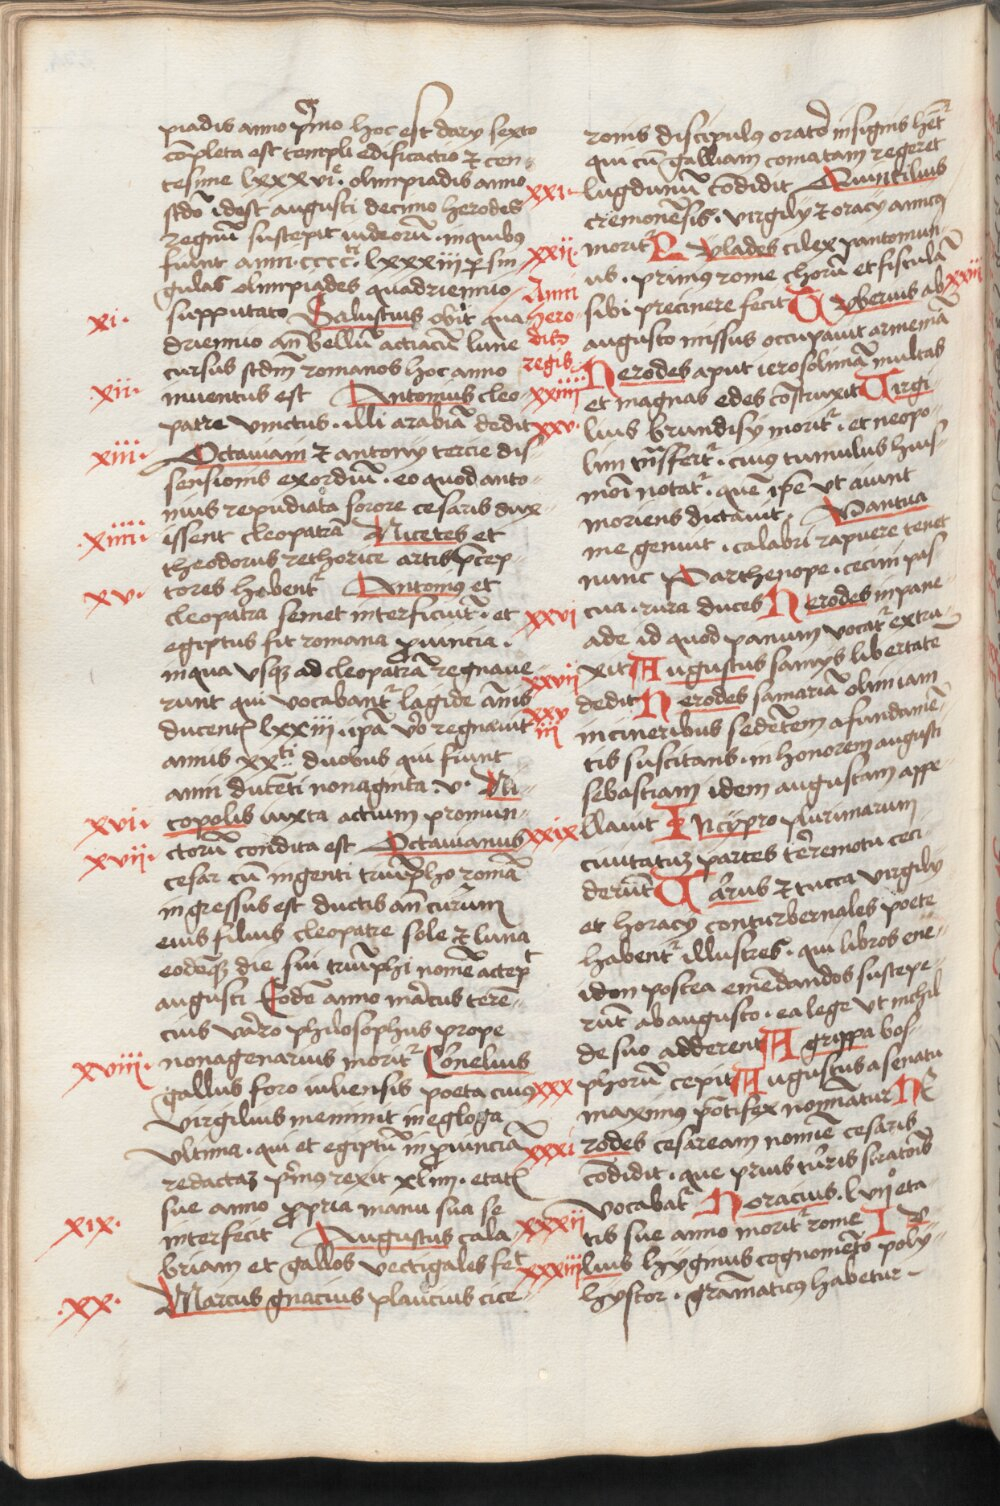 piadis anno pͥmo hoc est darÿ sexto
cōpleta est templi edificactio ⁊ cen⸗
tesime lxxxviͤ· olimpiadis anno
scd̄o idest augusti decimo herodes
regnū suscepit iudeorū · inquibus
fiunt anni · cccc· lxxxiii ꝑ sin
gulas olimpiades quadriennio
xi· supputato Salustius obijt qua
driennio an̄ bellū actiacū lune
cursus scdm̄ romanos hoc anno
xii· inuentus est Antonius cleo⸗
patre vinctus · illi arabiā dedit
xiii· Octauiani ⁊ antonÿ tercie dis⸗
sensionis exordiū · eo quod anto⸗
nius repudiata sorore cesaris dux⸗
xiiii· issent cleopatrā Nicetes et
theodorus rethorice artis p̄cep⸗
xv· tores habentᷣ Antoniꝰ et
cleopatra semet interficiūt · et
egiptus fit romana ꝓuincia ·
inqua vsqꝫ ad cleopatrā regnaue⸗
runt qui vocabantᷣ lagide ānis
ducentꝭ lxxiii · ip̄a v̊o regnauit
annis xxᵗⁱ duobus qui fiunt
anni ducēti nonaginta v· Ni⸗
xvi· copolis iuxta actium promun⸗
xvii· ctoriū condita est Octauianus
cesar cū ingenti triūpho romā
ingressus est ductis an̄ currum
eius filiis cleopatre sole ⁊ luna
eodēqꝫ die sui triūphi nomē accepit
augusti Eodē anno marcus terē⸗
cius varro philosophus prope
xviii· nonagenarius moritᷣ Cōnelius
gallus foro iuliensis poeta cuiꝰ
virgilius meminit in egloga
vltima · qui et egiptū in ꝓuinciā
redactaꝫ pͥmꝰ rexit xliiii · etatꝭ
sue anno propria manu sua se
xix· interfecit Augustus cala⸗
briam et gallos vectigales fecͭ
·xx· Marcus gnacius plancius cice⸗
ronis discipulꝰ orator insignis hētᷣ
qui cū galliam comatam regeret
xxi· lugdunū cōdidit Quintilius
cremonēsis · virgilÿ ⁊ oracÿ amicꝰ
xxii· moritᷣ Pylades cilex pantomim⸗
Anni us · primꝰ rome chorū et fistulā
hero sibi precinere fecit Tyberius ab xxiii
dis augusto missus occupauit armeniā
regis Herodes aput ierosolimā multas
xxiiii et magnas edes cōstruxit Virgi
xxv· lius brundisÿ moritᷣ · et neopo⸗
lim trāsfertᷣ · ciuꝰ tumulus huis⸗
moī notatᷣ · quē ip̄e vt aiunt
moriens dictauit · Mantua
me genuit · calabri rapuere tenet
nunc Parthenope · cecini pas⸗
xxvi cua · rura duces Herodes in pane⸗
ade id quod panium vocatᷣ extru⸗
xxvii xit Augustus samÿs libertatē
xxv dedit Herodes samariā olim iam
iii in cineribus sedētem a fundamē⸗
tis suscitans · in honorem augusti
sebastiam idem augustam appe⸗
xxix llauit In cÿpro plurimarum
ciuitatuꝫ partes terremotu ceci⸗
derūt Varus ⁊ tucca virgilÿ
et horacÿ conturbernales poete
habentᷣ illustres · qui libros ene⸗
idon postea emēdandos suscepe⸗
rūt ab augusto · ea lege vt nichil
de suo adderent Agrippa bos⸗
xxx phorū cepit Augustus a senatu
maximꝰ pōtifex nominatur He
xxxi rodes cesaream nomīe cesaris
cōdidit · que prius turris stratōis
vocabatᷣ Horacius · lvii eta⸗
xxxii tis sue anno moritᷣ rome Iu
xxxiii lius hÿginus cognomēto polÿ⸗
hystor · gramaticꝰ habetur ⸗